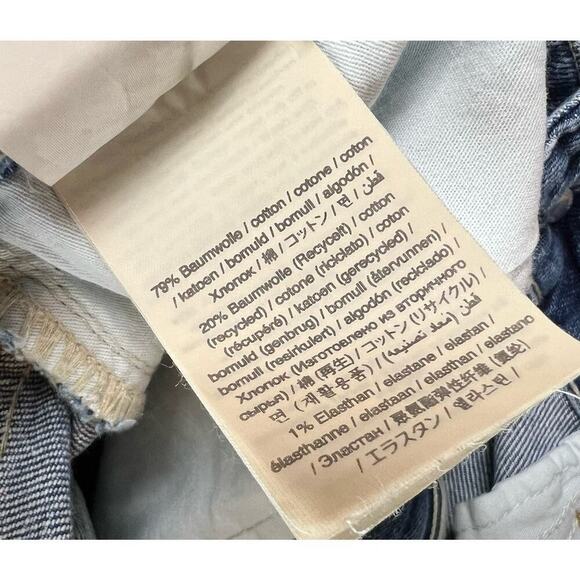 79% Baumwolle / cotton / cotone / coton
/ katoen / bomuld / bomull / algodón /
Хлопок / 棉 / コットン / 면 / قطن /
20% Baumwolle (Recycelt) / cotton
(recycled) / cotone (riciclato) / coton
(récupéré) / katoen (gerecycled) /
bomuld (genbrug) / bomull (återvunnen) /
bomull (resirkulert) / algodón (reciclado) /
Хлопок (Изготовлено из вторичного
сырья) / 棉 (再生) / コットン(リサイクル) /
면 (재활용품) / (معاد تصنيعه) قطن
1% Elasthan / elastane / elastan /
élasthanne / elastaan / elasthan / elastano
/ Эластан / 聚氨酯弹性纤维 (氨纶)
/ エラスタン / 엘라스틴 /